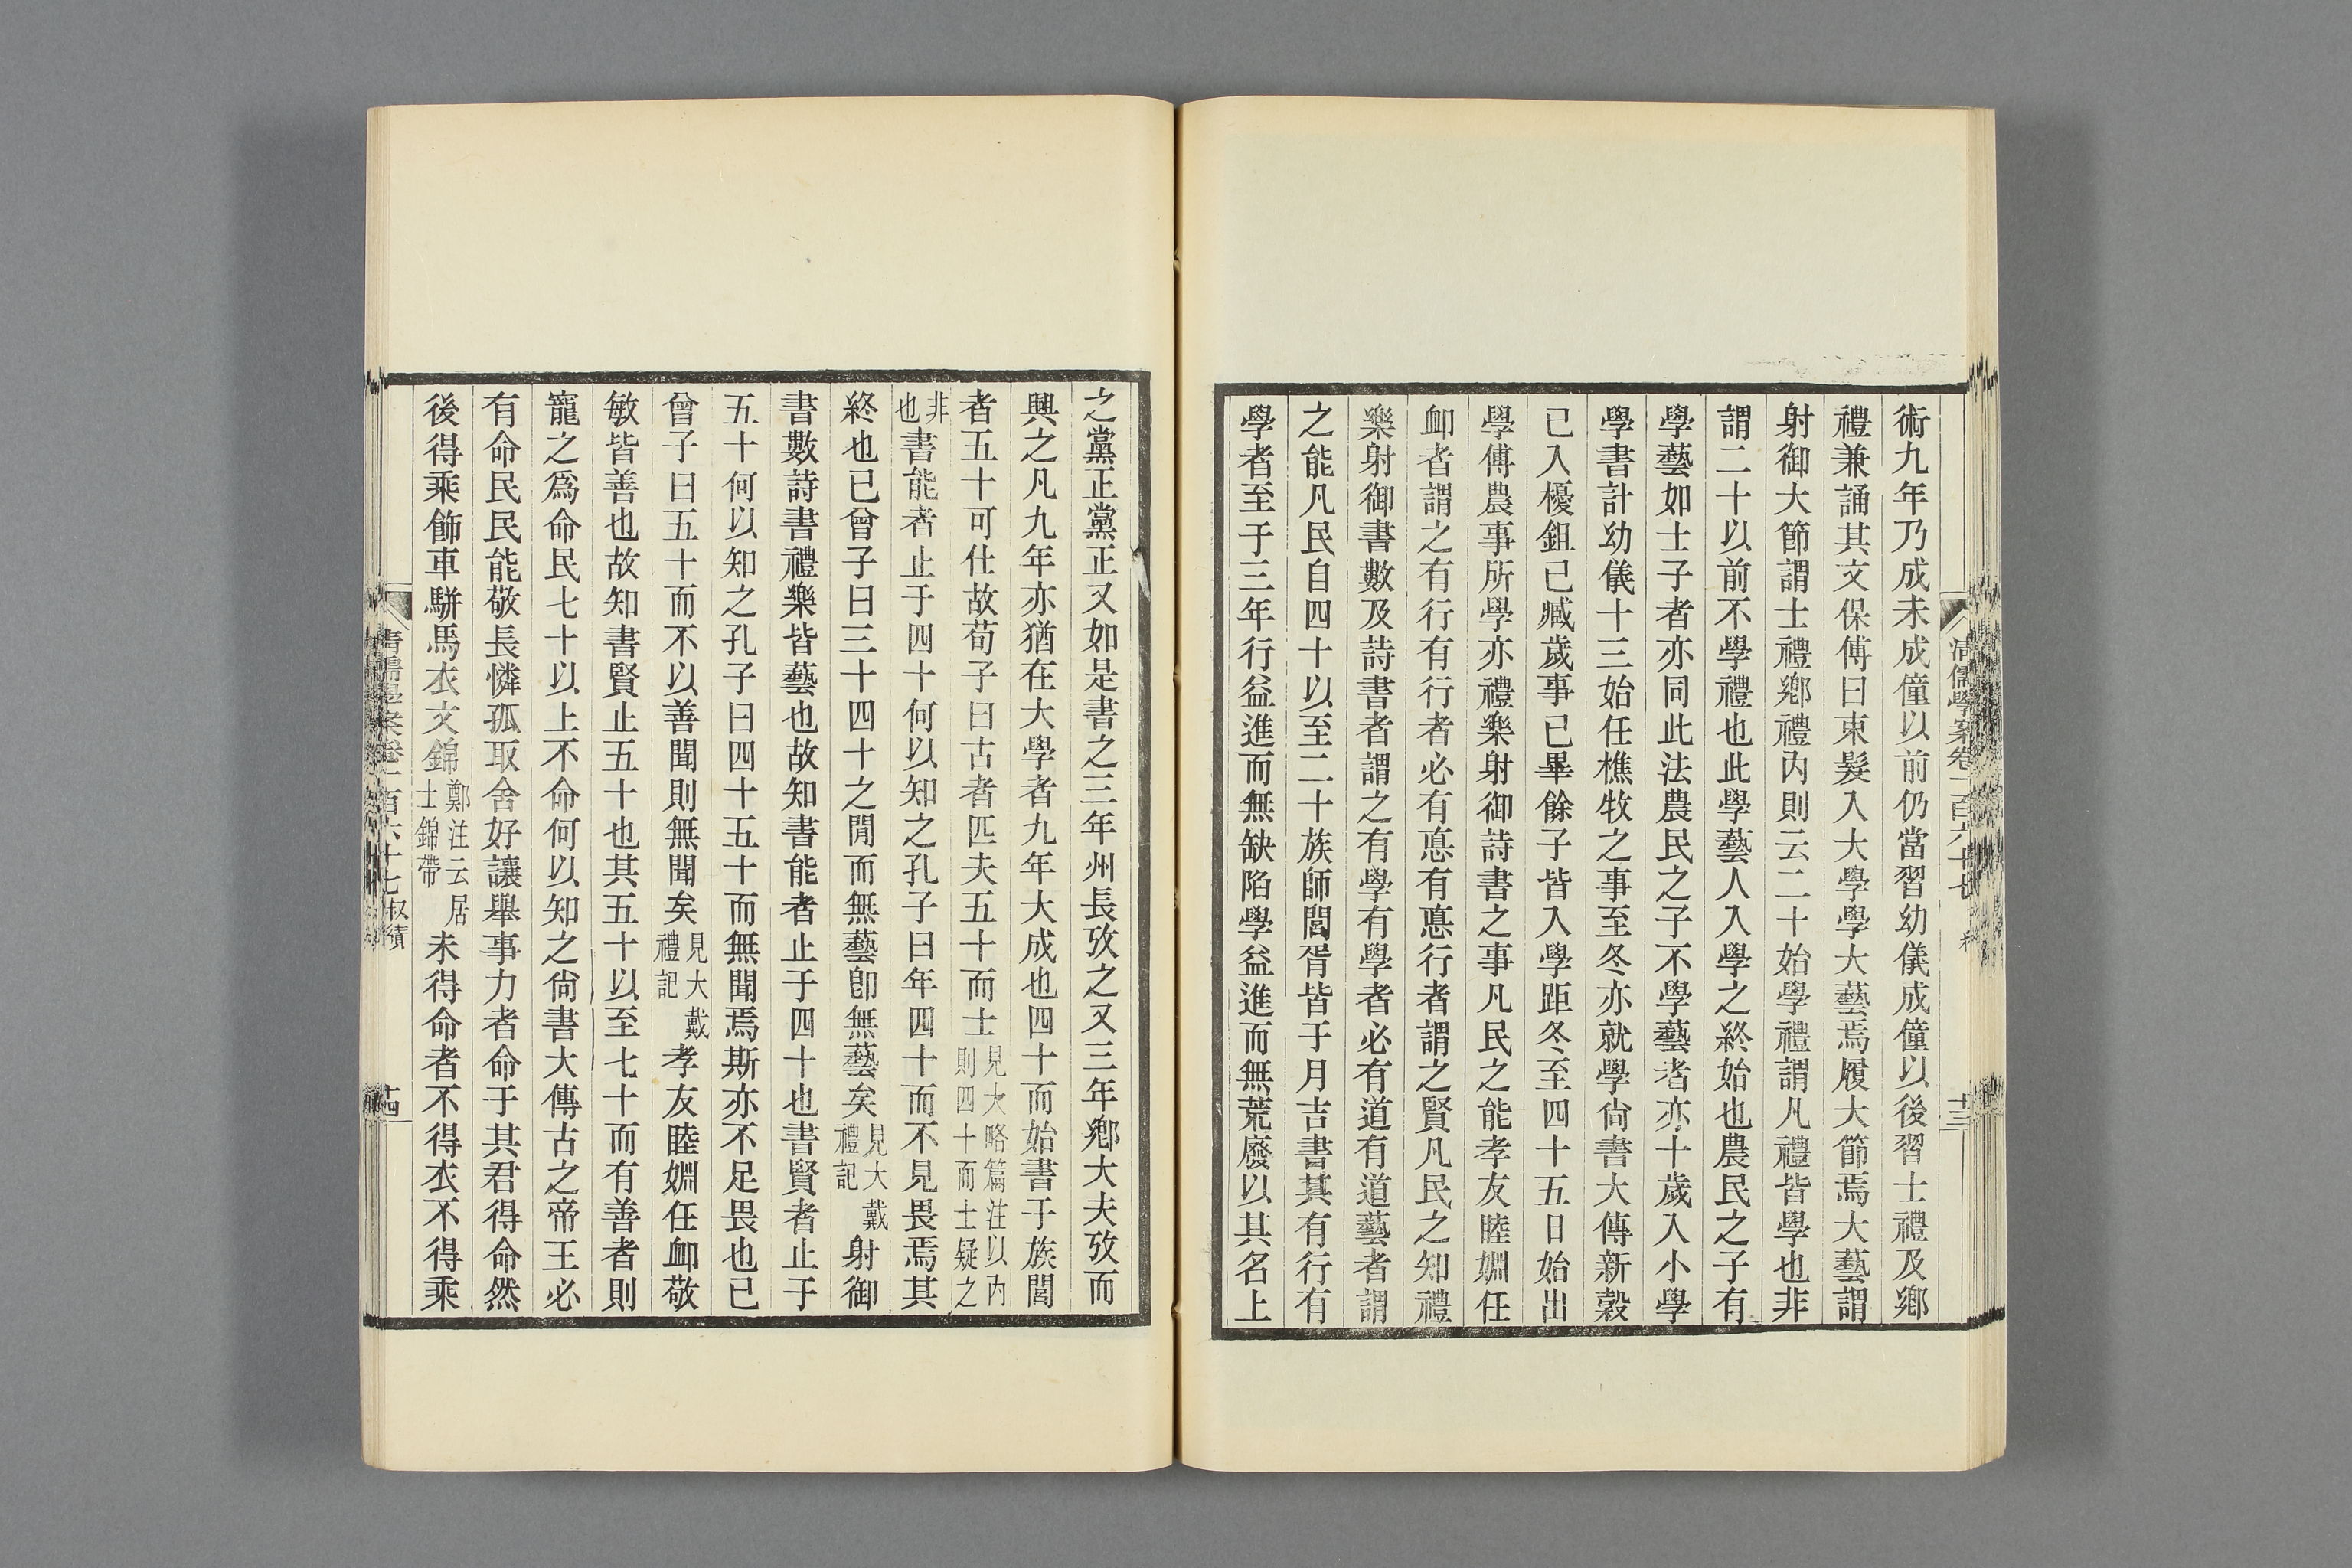 術九年乃成未成僮以前仍當習幼儀成僮以後習士禮及鄉
禮兼誦其文保傅曰束髮入大學學大藝焉履大節焉大藝謂
射御大節謂士禮鄉禮內則云二十始學禮謂凡禮皆學也非
謂二十以前不學禮也此學藝人入學之終始也農民之子有
學藝如士子者亦同此法農民之子不學藝者亦十歲入小學
學書計幼儀十三始任樵牧之事至冬亦就學尙書大傳新穀
已入耰鉏已臧歲事已畢餘子皆入學距冬至四十五日始出
學傅農事所學亦禮樂射御詩書之事凡民之能孝友睦婣任
卹者謂之有行有行者必有悳有悳行者謂之賢凡民之知禮
樂射御書數及詩書者謂之有學有學者必有道有道藝者謂
之能凡民自四十以至二十族師閭胥皆于月吉書其有行有
學者至于三年行益進而無缺陷學益進而無荒廢以其名上
清儒學案卷一百六十七
十三
之黨正黨正又如是書之三年州長攷之又三年鄉大夫攷而
興之凡九年亦猶在大學者九年大成也四十而始書于族閭
者五十可仕故荀子曰古者匹夫五十而士見大略篇注以內則四十而士疑之
非也書能者止于四十何以知之孔子曰年四十而不見畏焉其
終也已曾子曰三十四十之閒而無藝卽無藝矣見大戴禮記射御
書數詩書禮樂皆藝也故知書能者止于四十也書賢者止于
五十何以知之孔子曰四十五十而無聞焉斯亦不足畏也已
曾子曰五十而不以善聞則無聞矣見大戴禮記孝友睦婣任卹敬
敏皆善也故知書賢止五十也其五十以至七十而有善者則
寵之爲命民七十以上不命何以知之尙書大傳古之帝王必
有命民民能敬長憐孤取舍好讓舉事力者命于其君得命然
後得乘飾車騈馬衣文錦鄭注云居士錦帶未得命者不得衣不得乘
清儒學案卷一百六十七 叔績
十四